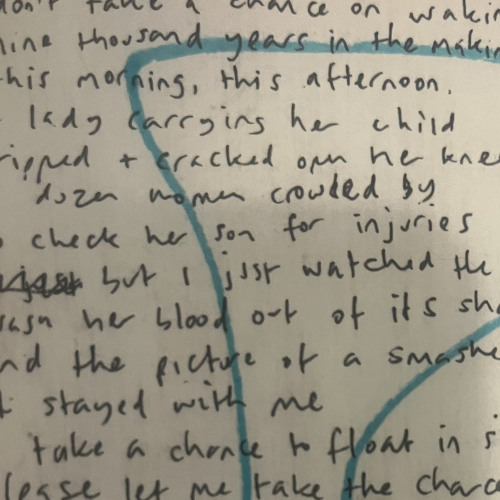 don't take a chance on
nine thousand years in the
this morning, this afternoon.
lady carrying her child
ripped + cracked open her
dozen women crowded by
check her son for injuries
but I just watched the
her blood out of it's
and the picture of a
stayed with me
take a chance to float in
please let me take the